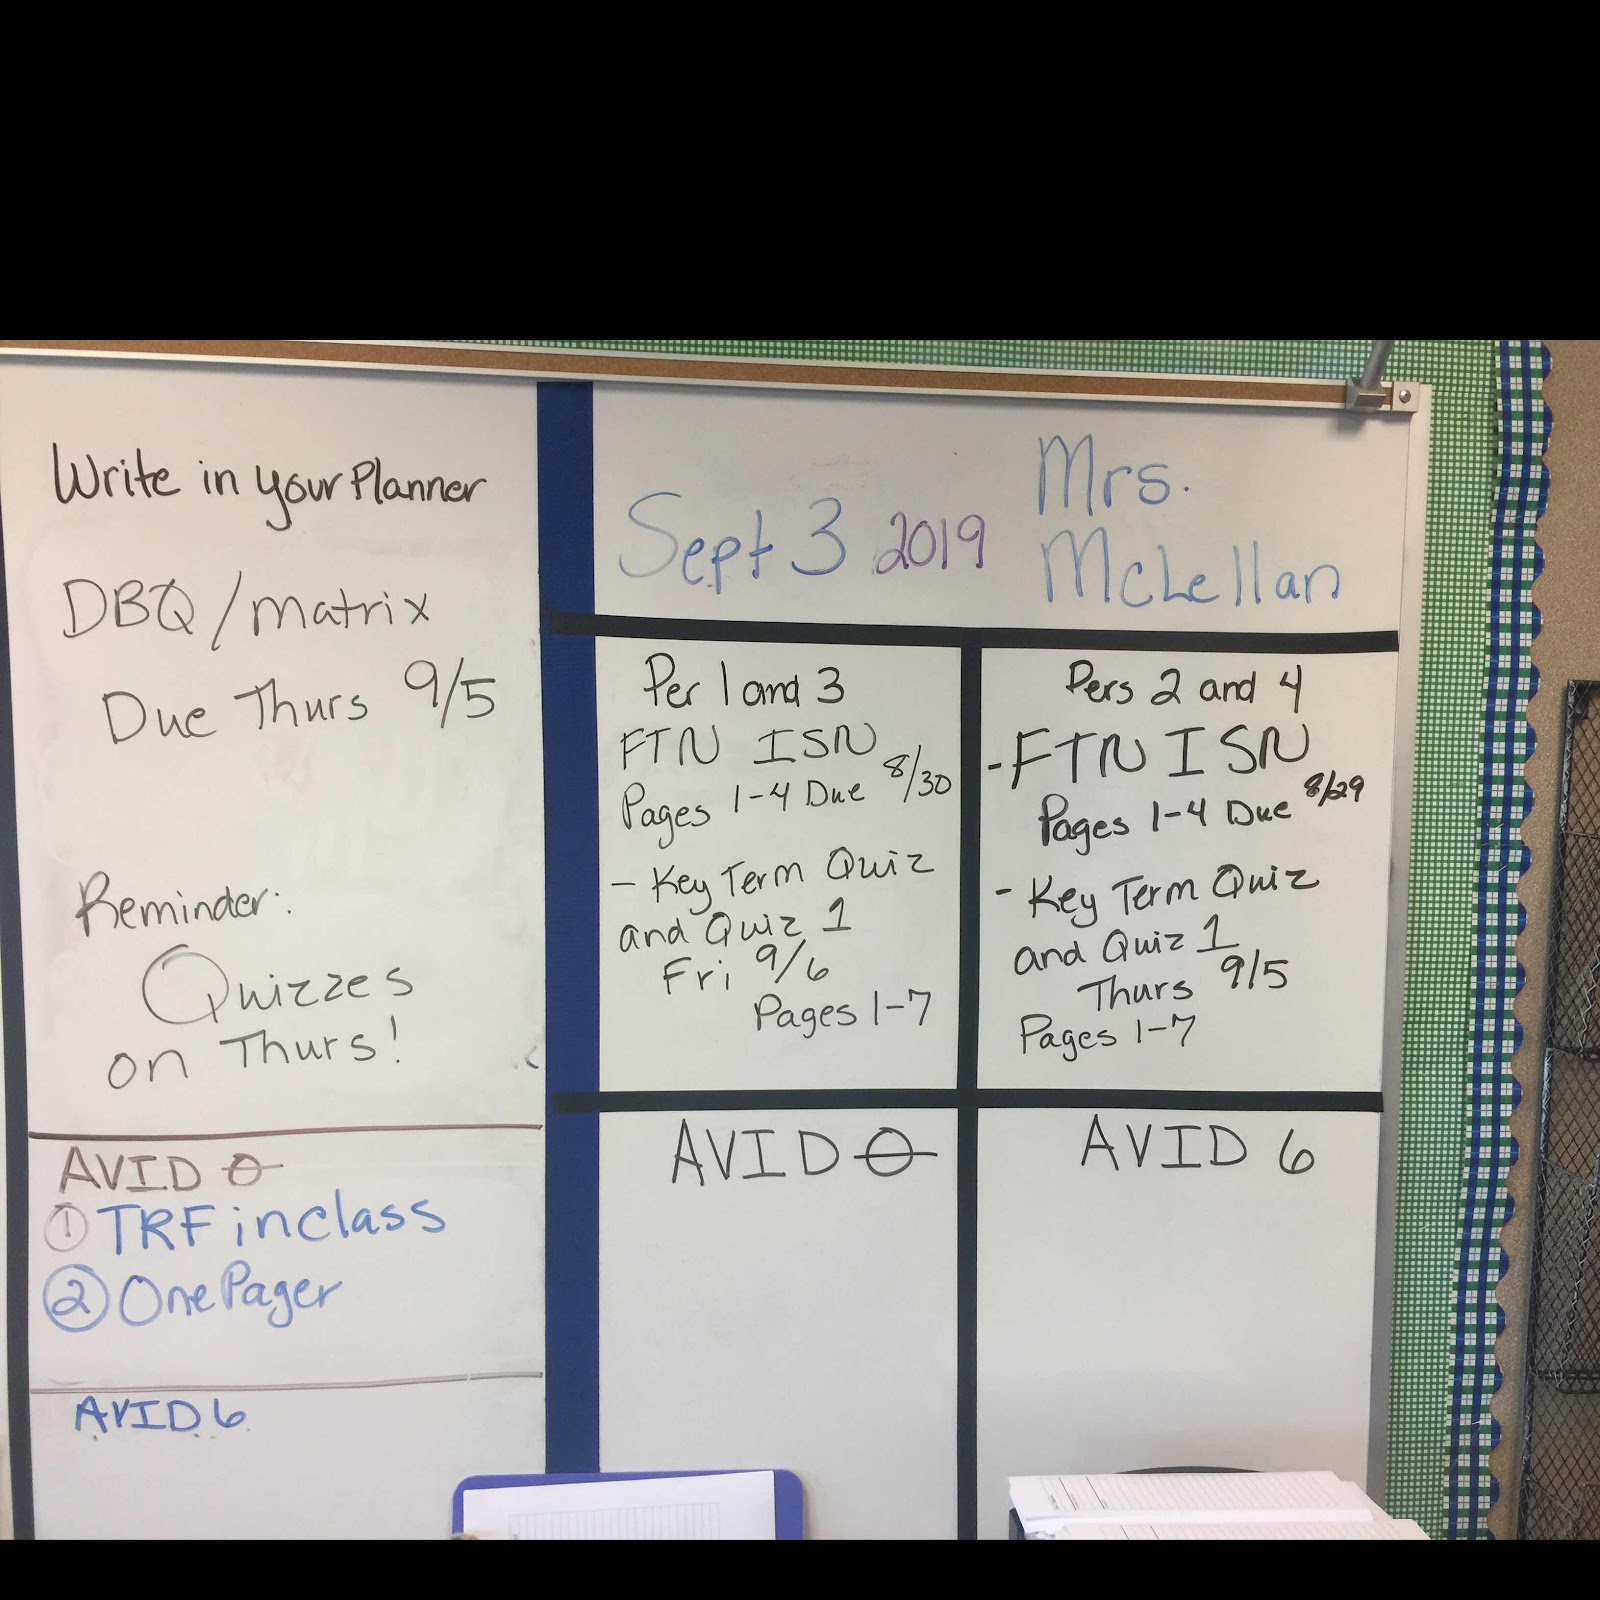 Write in your Planner
DBQ/matrix
Due Thurs 9/5
Reminder:
Quizzes
on Thurs!
AVID 0
① TRF in class
② One Pager
AVID 6
Sept 3 2019
Mrs.
McLellan
Per 1 and 3
FTN ISN
Pages 1-4 Due 8/30
- Key Term Quiz
and Quiz 1
Fri 9/6
Pages 1-7
Pers 2 and 4
- FTN ISN
Pages 1-4 Due 8/29
- Key Term Quiz
and Quiz 1
Thurs 9/5
Pages 1-7
AVID 0
AVID 6